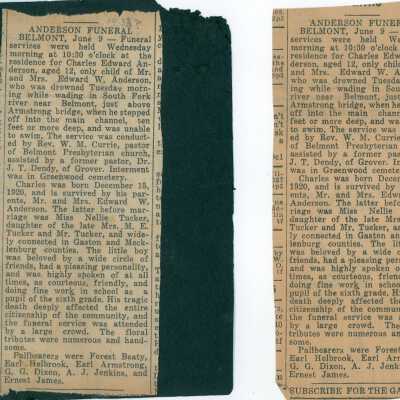 ANDERSON FUNERAL
BELMONT, June 9 — Funeral
services were held Wednesday
morning at 10:30 o'clock at the
residence for Charles Edward An-
derson, aged 12, only child of Mr.
and Mrs. Edward W. Anderson,
who was drowned Tuesday morn-
ing while wading in South Fork
river near Belmont, just above
Armstrong bridge, when he stepped
off into the main channel, ten
feet or more deep, and was unable
to swim. The service was conduct-
ed by Rev. W. M. Currie, pastor
of Belmont Presbyterian church,
assisted by a former pastor, Dr.
J. T. Dendy, of Grover. Interment
was in Greenwood cemetery.
Charles was born December 18,
1920, and is survived by his par-
ents, Mr. and Mrs. Edward W.
Anderson. The latter before mar-
riage was Miss Nellie Tucker,
daughter of the late Mrs. M. E.
Tucker and Mr. Tucker, and wide-
ly connected in Gaston and Meck-
lenburg counties. The little boy
was beloved by a wide circle of
friends, had a pleasing personality,
and was highly spoken of at all
times, as courteous, friendly, and
doing fine work in school as a
pupil of the sixth grade. His tragic
death deeply affected the entire
citizenship of the community, and
the funeral service was attended
by a large crowd. The floral
tributes were numerous and hand-
some.
Pallbearers were Forest Beaty,
Earl Helbrook, Earl Armstrong,
G. G. Dixon, A. J. Jenkins, and
Ernest James.
ANDERSON FUNERA
BELMONT, June 9 —
services were held W
morning at 10:30 o'cloc
residence for Charles Ed
derson, aged 12, only chil
and Mrs. Edward W. A
who was drowned Tuesd
ing while wading in So
river near Belmont, ju
Armstrong bridge, when h
off into the main cha
feet or more deep, and w
to swim. The service was
ed by Rev. W. M. Curri
of Belmont Presbyterian
assisted by a former pa
J. T. Dendy, of Grover.
was in Greenwood cemete
Charles was born Dece
1920, and is survived by
ents, Mr. and Mrs. Ed
Anderson. The latter be
riage was Miss Nellie
daughter of the late M
Tucker and Mr. Tucker, a
ly connected in Gaston a
lenburg counties. The l
was beloved by a wide
friends, had a pleasing pe
and was highly spoken
times, as courteous, frien
doing fine work in sch
pupil of the sixth grade. H
death deeply affected th
citizenship of the commu
the funeral service was
by a large crowd. T
tributes were numerous an
some.
Pallbearers were Fores
Earl Helbrook, Earl Ar
G. G. Dixon, A. J. Jenk
Ernest James.
SUBSCRIBE FOR THE GA